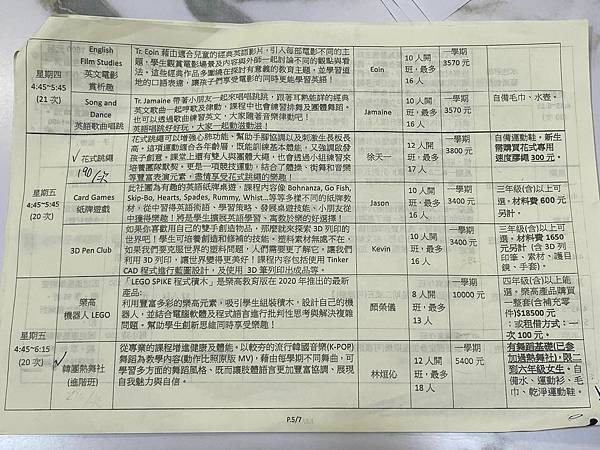 星期四
4:45~5:45
(21 次)
English
Film Studies
英文電影
賞析趣
Tr. Eoin 藉由適合兒童的經典英語影片，引入每部電影不同的主
題，學生觀賞電影場景及內容與外師一起討論不同的觀點與看
法，這些經典作品多圍繞在探討有意義的教育主題，並學習道
地的口語表達，讓孩子們享受電影的同時更能學習英語！
Eoin
10 人開
班，最多
16 人
一學期
3570 元
Song and
Dance
英語歌曲唱跳
Tr. Jamaine 帶著小朋友一起來唱唱跳跳，跟著耳熟能詳的經典
英文歌曲一起哼歌及律動，課程中也會練習排舞及團體舞蹈，
也可以透過歌曲練習英文，大家隨著音樂律動吧！
英語唱跳好好玩，大家一起動滋動滋！
Jamaine
10 人開
班，最多
16 人
一學期
3570 元
自備毛巾、水壺。
星期五
4:45~5:45
(20 次)
花式跳繩
190/次
花式跳繩可以增強心肺功能、幫助手腳協調以及刺激生長板長
高。這項運動適合各年齡層，既能訓練基本體能，又強調啟發
孩子創意。課堂上還有雙人與團體大繩，也會透過小組練習來
培養團隊默契。更是一項競技運動，結合了體操、街舞和音樂
等豐富表演元素。盡情享受花式跳繩的樂趣！
徐天一
12 人開
班，最多
17 人
一學期
3800 元
自備運動鞋。新生
需購買花式專用
速度膠繩 300 元。
Card Games
紙牌遊戲
此社團為有趣的英語紙牌桌遊，課程內容像 Bohnanza, Go Fish,
Skip-Bo, Hearts, Spades, Rummy, Whist...等等多樣不同的紙牌教
材，從中習得英語術語、學習策略、發展桌遊技能。小朋友從
中獲得樂趣！將是學生擴展英語學習、寓教於樂的好選擇！
Jason
10 人開
班，最多
16 人
一學期
3400 元
三年級(含)以上可
選。材料費 600 元
另計。
3D Pen Club
如果你喜歡用自己的雙手創造物品，那麼就來探索 3D 列印的
世界吧！學生可培養創造和修補的技能。塑料素材無處不在，
如果我們要克服世界的塑料問題，人們需要更了解它，讓我們
利用 3D 列印，讓世界變得更美好！課程內容包括使用 Tinker
CAD 程式進行藍圖設計，及使用 3D 筆列印出成品等。
Kevin
10 人開
班，最多
16 人
一學期
3400 元
三年級(含)以上可
選。材料費 1650
元另計 (含 3D 列
印筆、素材、護目
鏡、手套)。
星期五
4:45~6:15
(20 次)
樂高
機器人 LEGO
「LEGO SPIKE 程式積木」，是樂高教育版在 2020 年推出的最新
產品:
利用豐富多彩的樂高元素，吸引學生組裝積木，設計自己的機
器人，並結合電腦軟體及程式語言進行批判性思考與解決複雜
問題。幫助學生創新思維同時享受樂趣！
顏榮儀
8 人開
班，最多
13 人
一學期
10000 元
四年級(含)以上能
選。樂高產品購買
一整套(含補充零
件)$18500 元
；或租借方式：一
次 100 元。
韓團熱舞社
(進階班)
從專業的課程增進健康及體能。以較夯的流行韓國音樂(K-POP)
舞蹈為教學內容(動作比照原版 MV)，藉由每學期不同舞曲，可
學習多方面的舞蹈風格、既而讓肢體語言更加豐富協調、展現
自我魅力與自信。
林烜伈
12 人開
班，最多
18 人
一學期
5400 元
有舞蹈基礎(已參
加過熱舞社)，限二
到六年級女生。自
備水、運動衫、毛
巾、乾淨運動鞋。
P.5/7